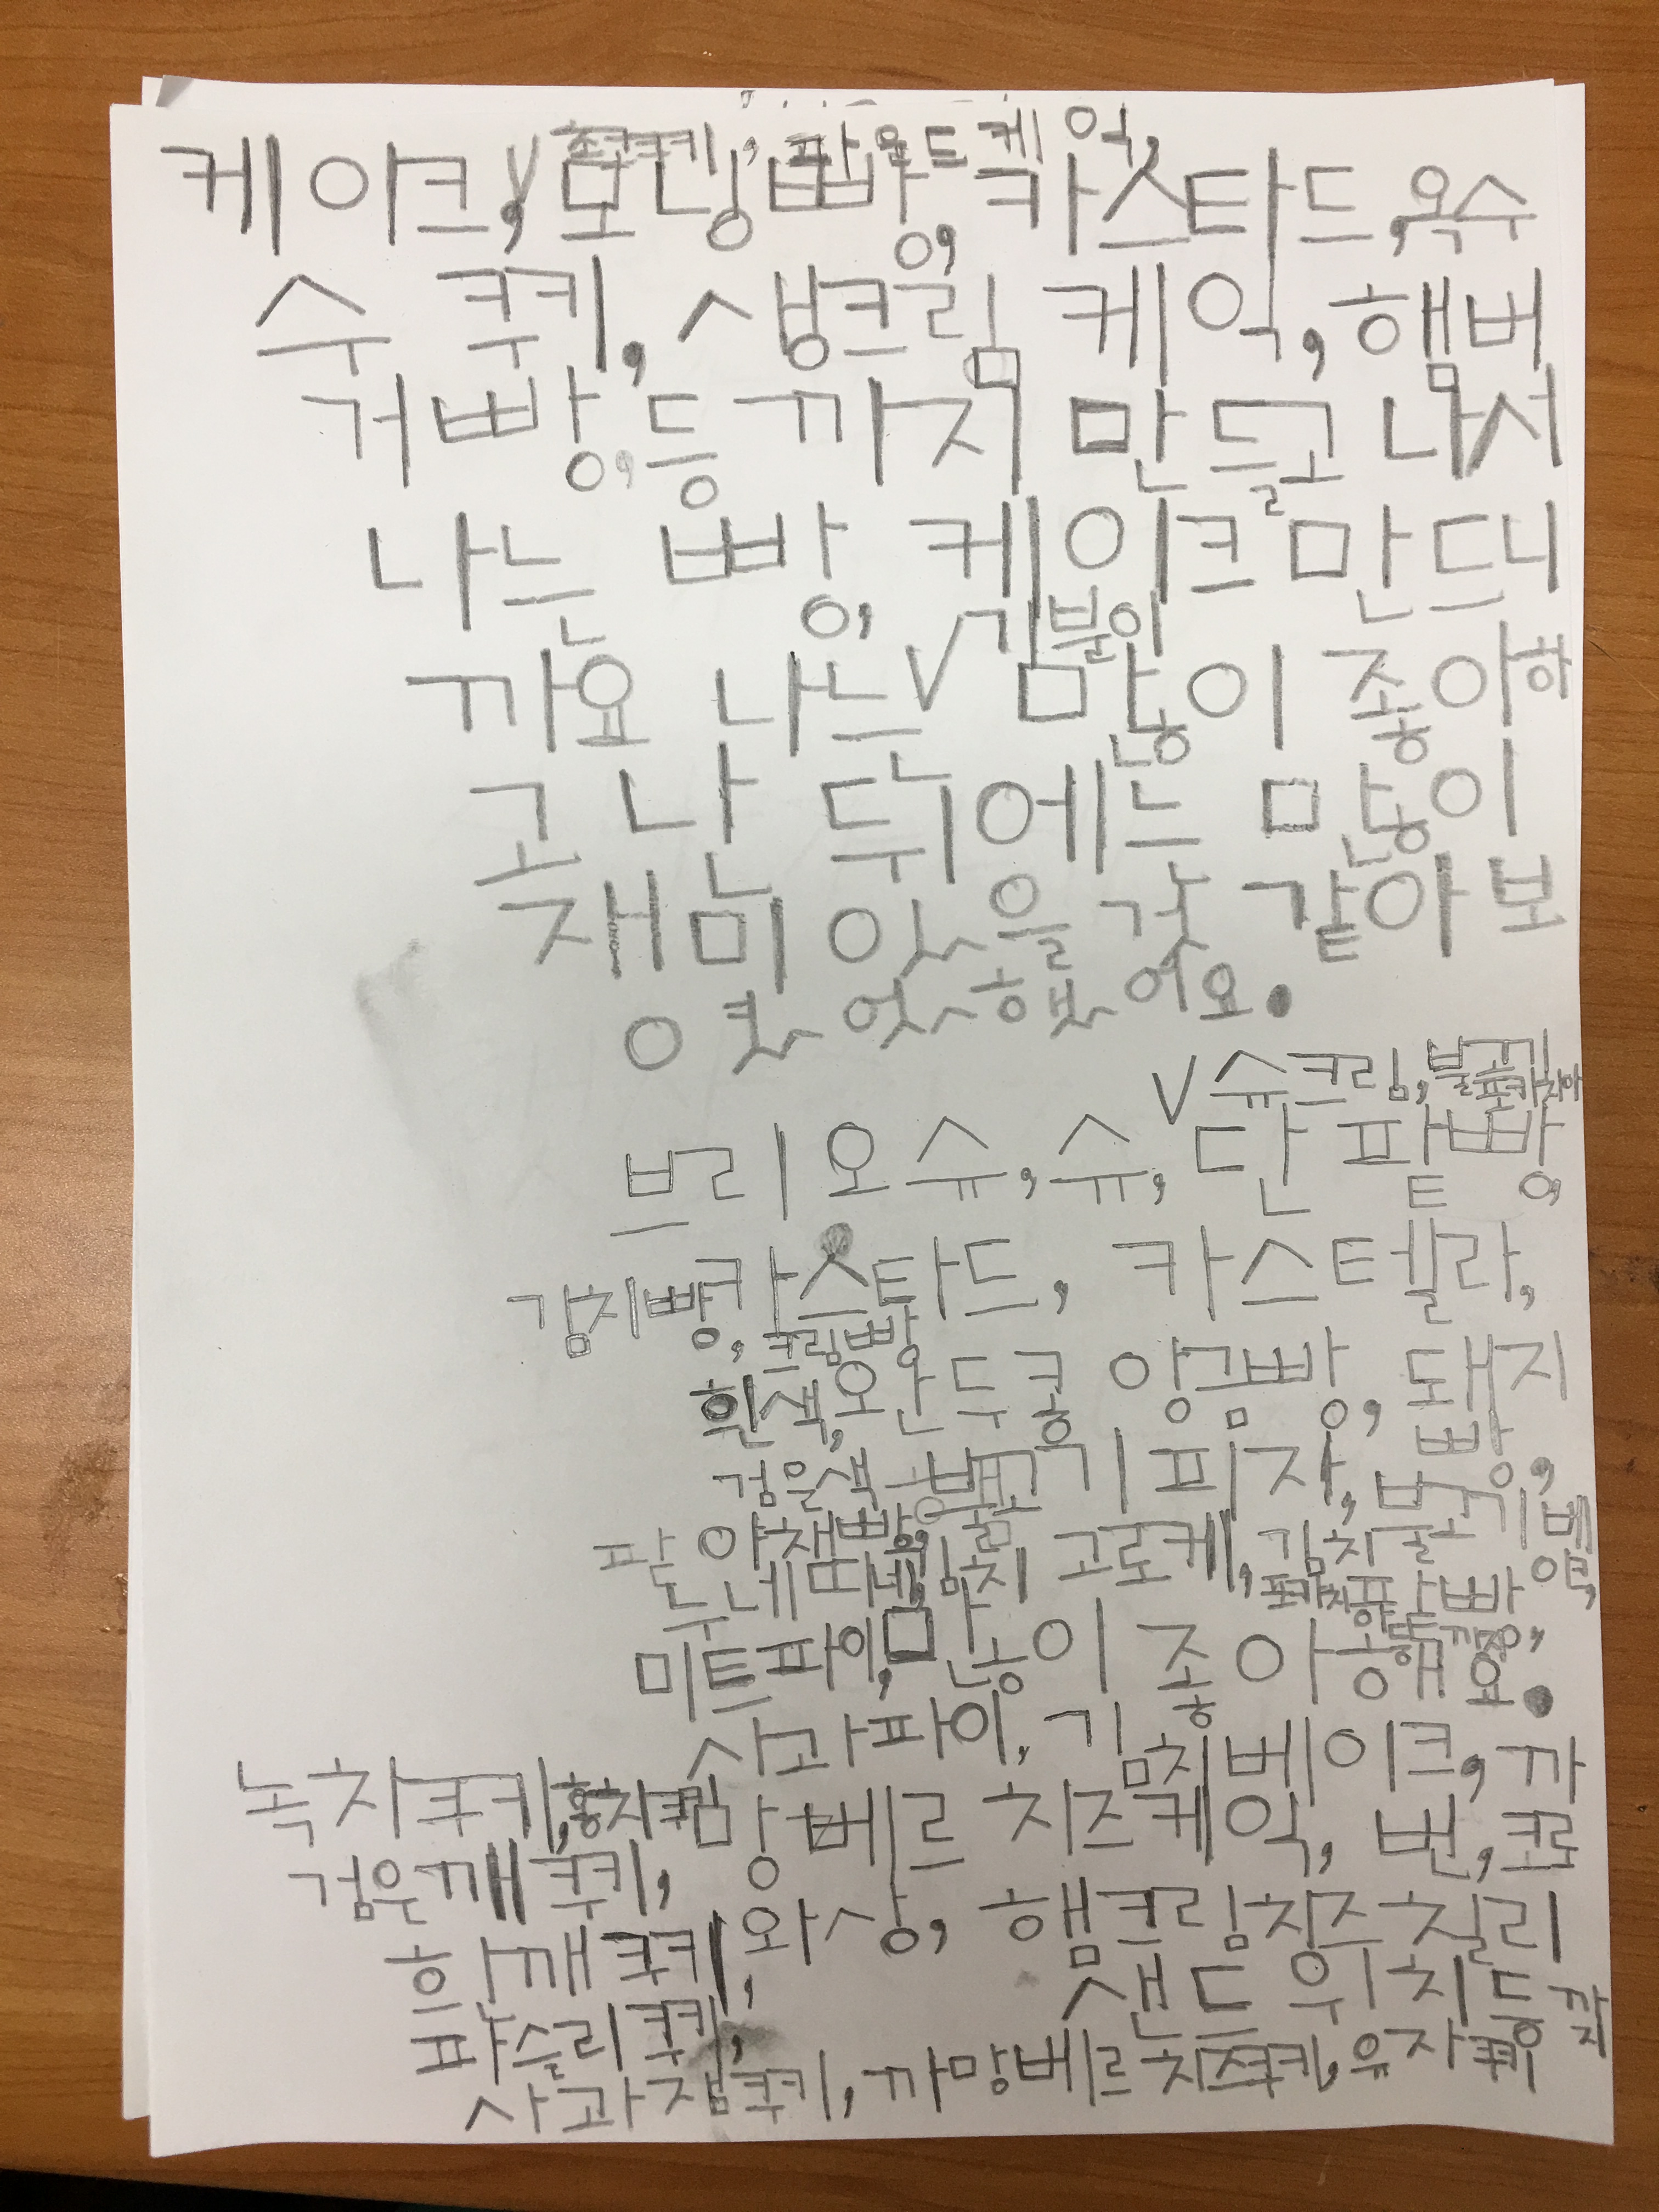 초코쿠키, 파운드케익,
케이크, V 모닝빵, 카스타드, 옥수
수 쿠키, 생크림 케익, 햄버
거빵, 등 까지 만들고 나서
나는 빵, 케이크 만드니
까요 나는 V 김분이
많이 좋아하
고 난 뒤에는 많이
재미 있을 것 같아 보
이 었 했어요.
V 슈크림, 불고기포카치아
브리오슈, 슈, 단팥빵,
카스타드, 카스텔라,
김치빵, 크림빵
흰색, 완두콩 앙금빵, 돼지
검은색 불고기피자, 빵,
팥 야채빵, 김치 고로케, 김치불고기베이글,
미트파이, 많이 좋아해요.
사과파이, 김치베이크, 까
녹차쿠키, 홍차쿠키 망베르 치즈케익, 번, 크로
검은깨쿠키,
흰깨쿠키, 와상, 햄크림칭즈칠리
파슬리쿠키, 샌드위치등 까지
사과잼쿠키, 까망베르치즈쿠키, 유자쿠키